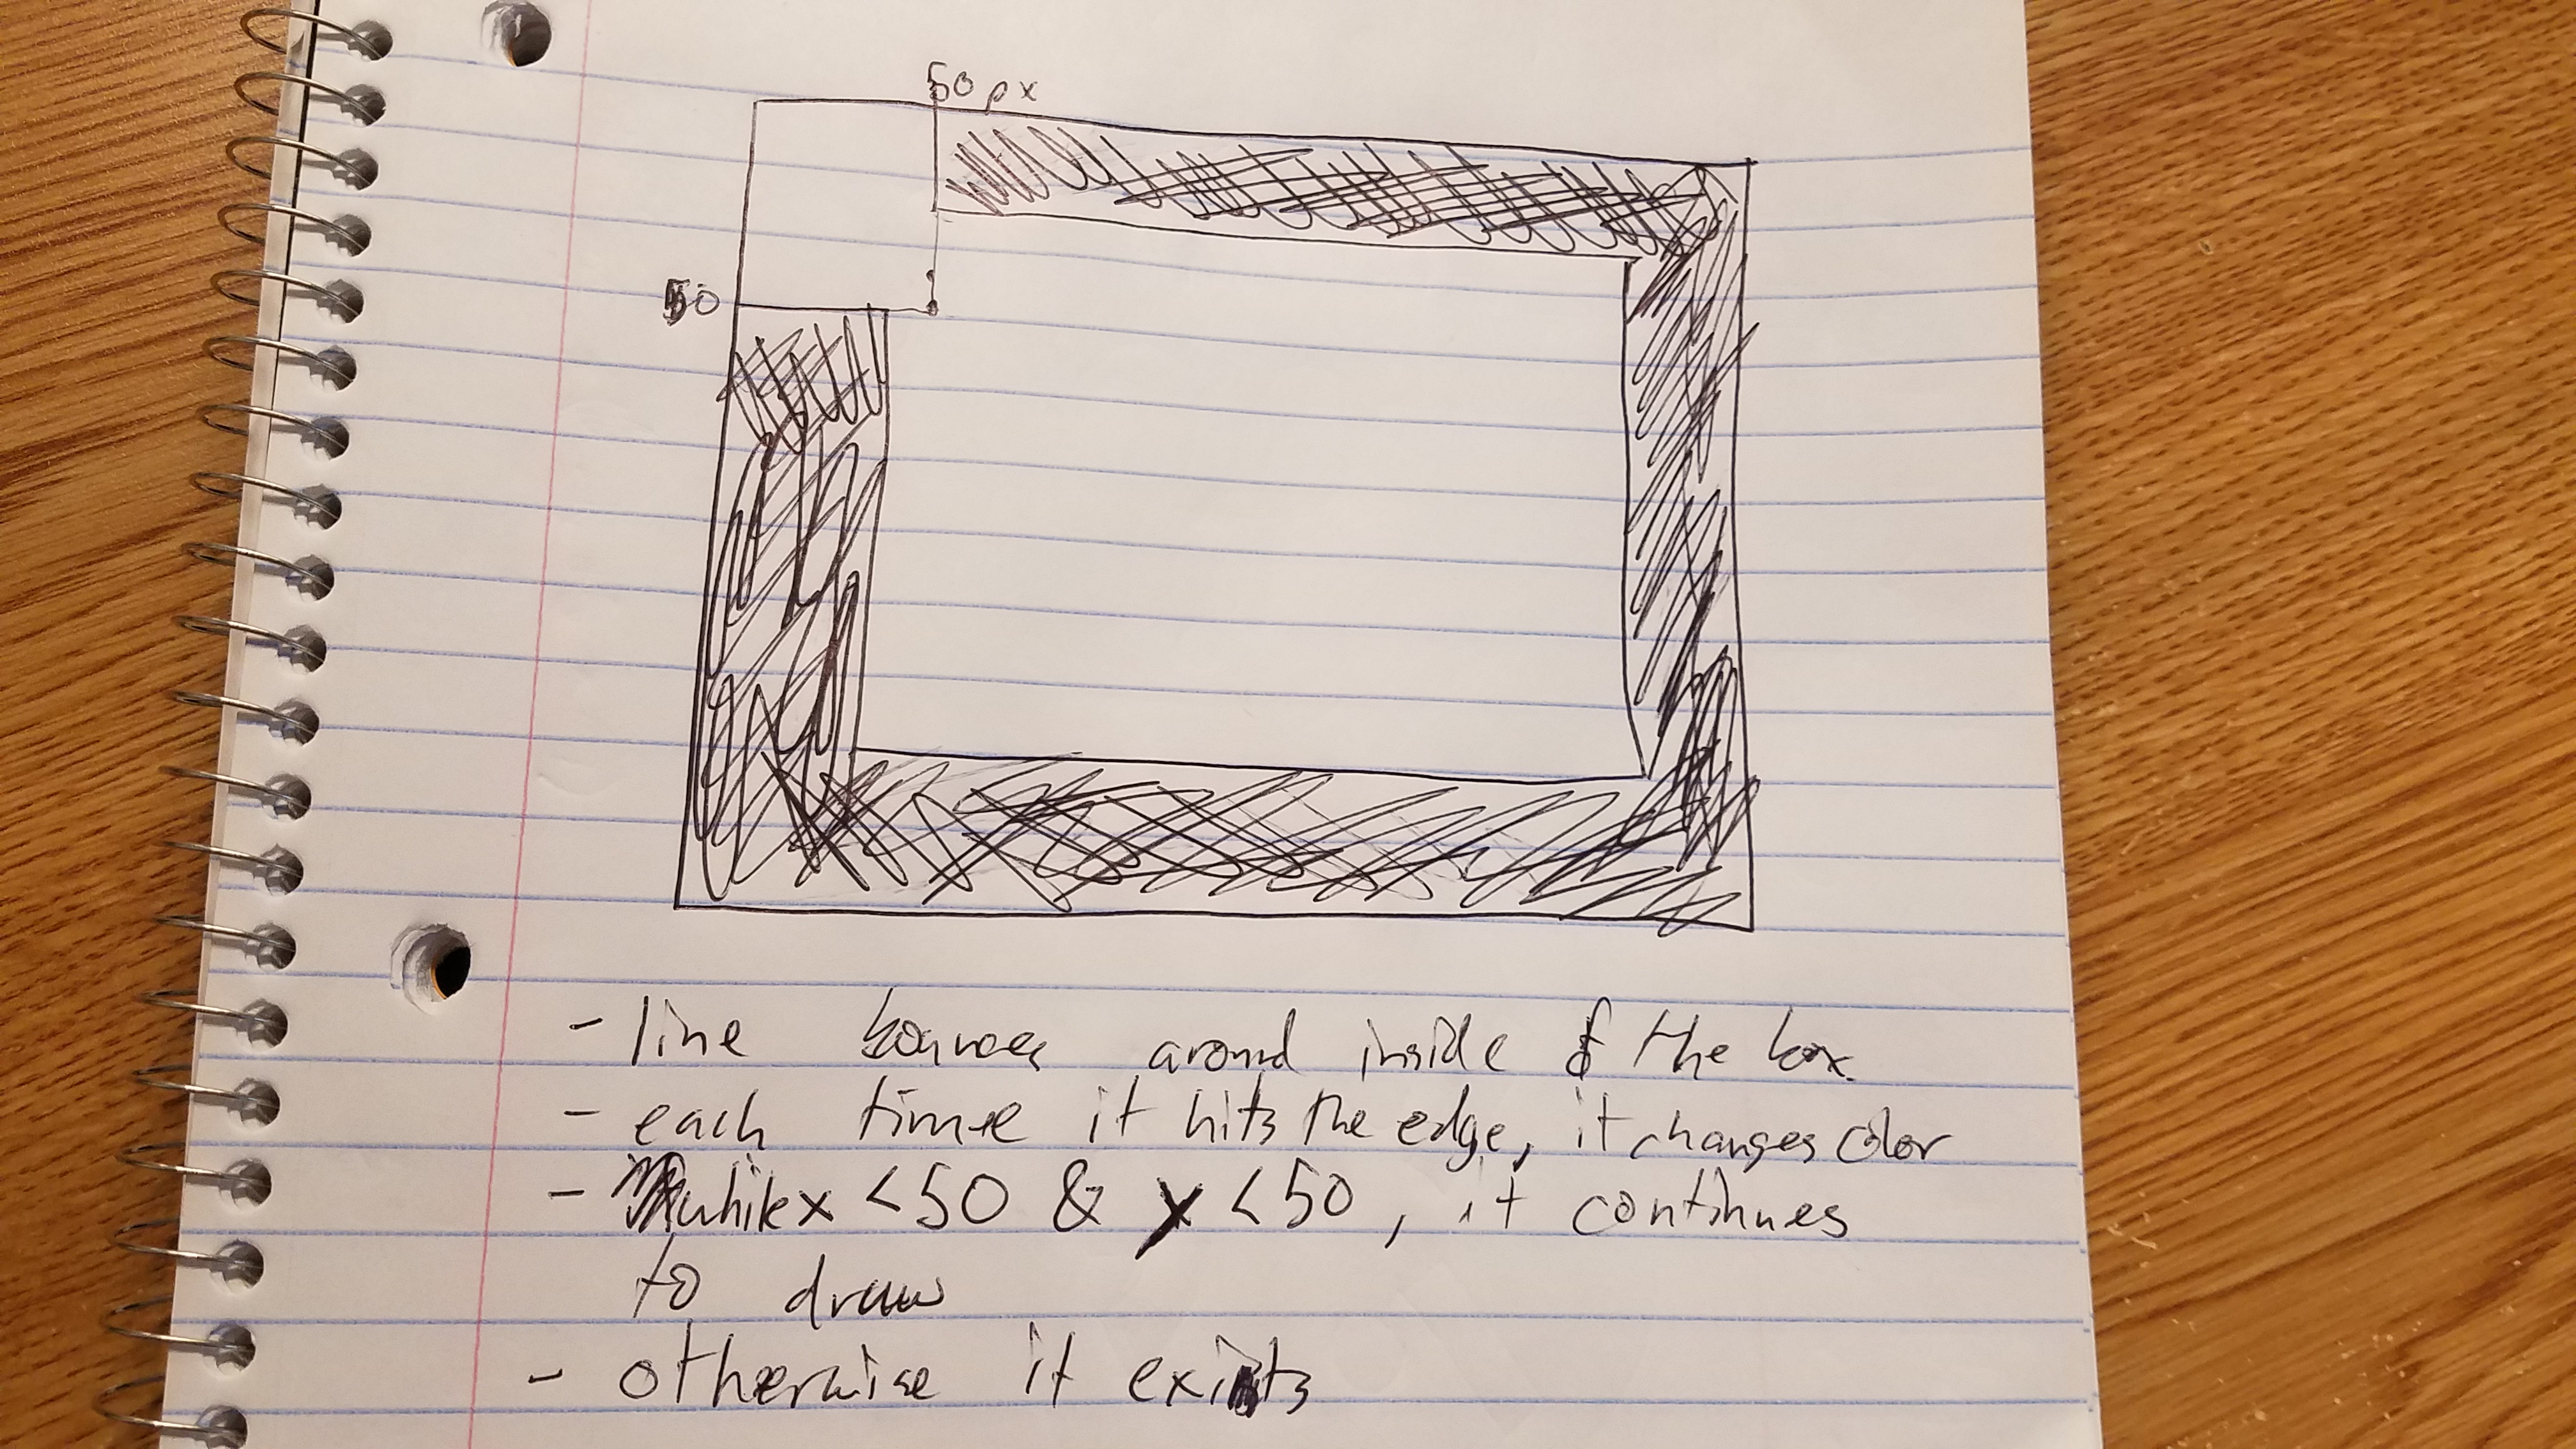 50px
50
- line bounces around inside of the box
- each time it hits the edge, it changes color
- while x < 50 & y < 50, it continues
to draw
- otherwise it exits